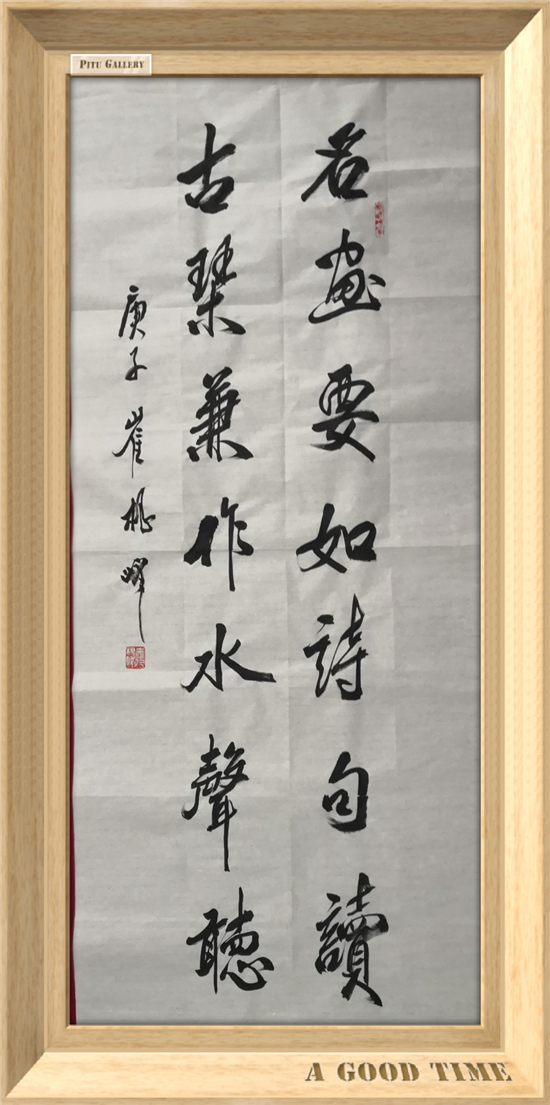 PITU GALLERY
名畫要如詩句讀
古琴兼作水聲聽
庚子 崔楊峰
A GOOD TIME